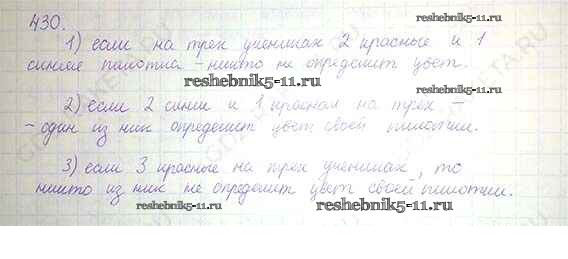 430.
reshebnik5-11.ru
1) если на трех ученицах 2 красные и 1
синяя пилотка - никто не определит цвет.
reshebnik5-11.ru
2) если 2 синие и 1 красная на трех -
- один из них определит цвет своей пилотки.
3) если 3 красные на трех ученицах, то
никто из них не определит цвет своей пилотки.
reshebnik5-11.ru
reshebnik5-11.ru